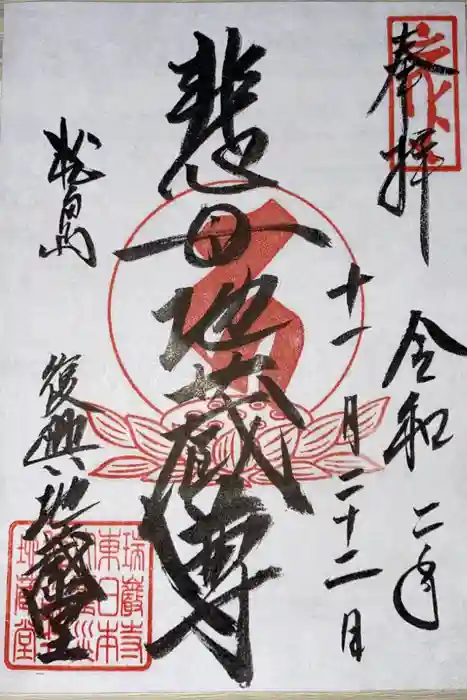 奉拝
令和二年
十一月二十二月
悲母地蔵尊
松島
復興地蔵堂
瑞巌寺
東日本
地蔵堂